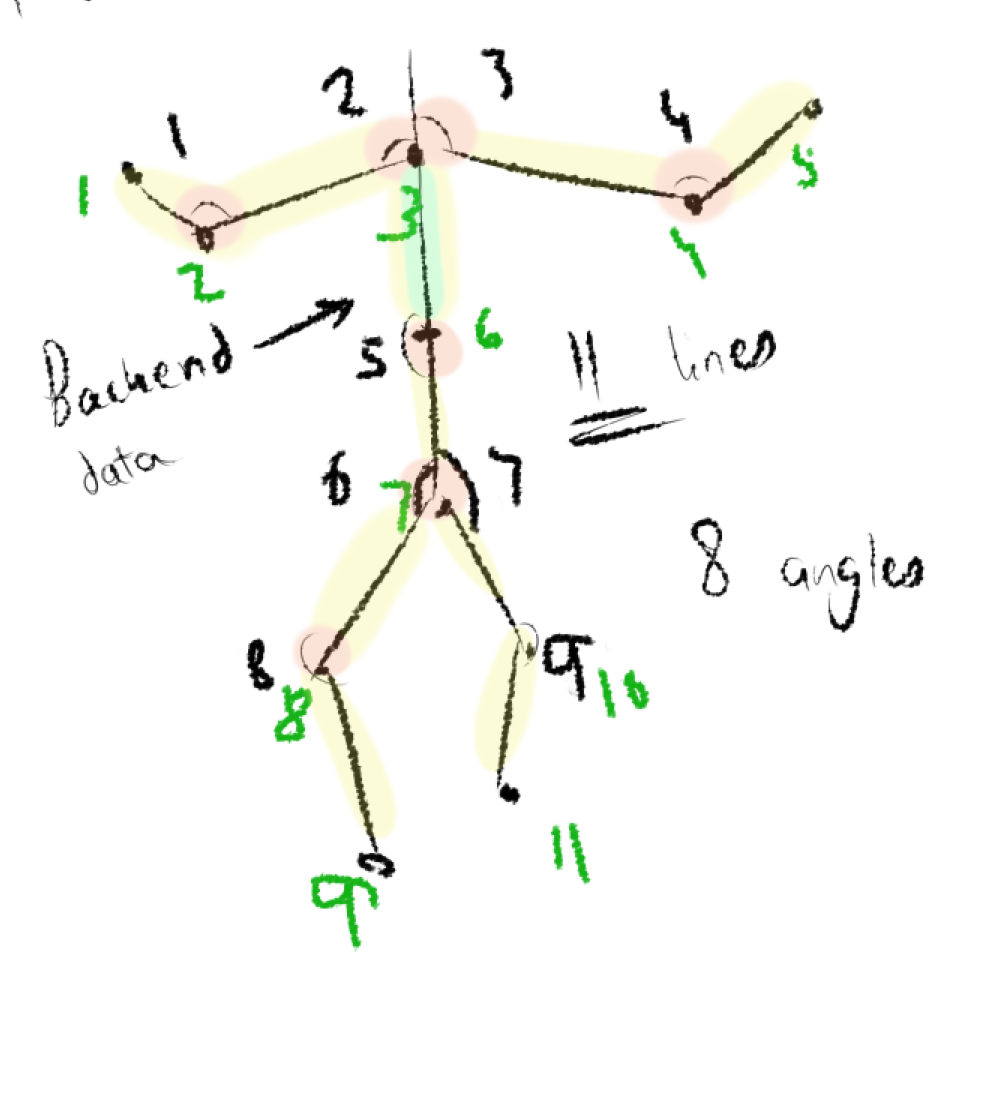 2 3
1 4
1 5
3
2 4
Backend
data
5 6
11 lines
6 7 7
8 angles
8 9
8 10
11
9